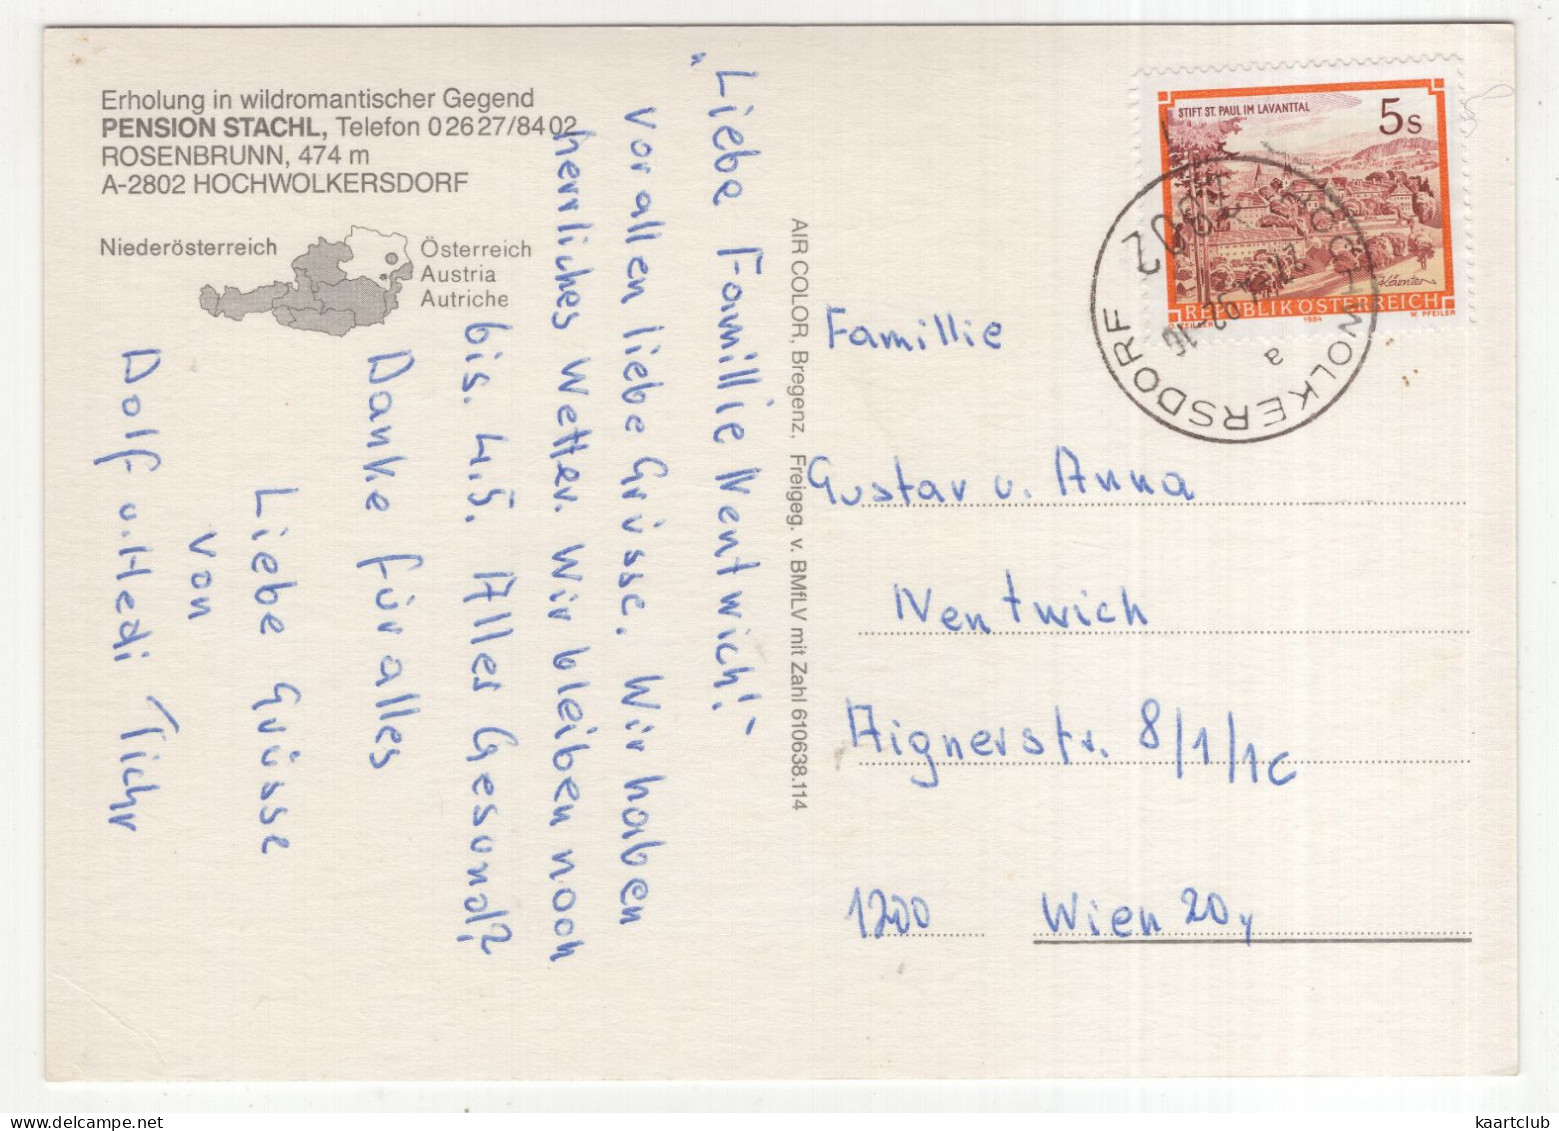 Erholung in wildromantischer Gegend
PENSION STACHL, Telefon 0 26 27/84 02
ROSENBRUNN, 474 m
A-2802 HOCHWOLKERSDORF
Niederösterreich
Österreich
Austria
Autriche
"Liebe Famillie Nentwich!"
Vor allen liebe Grüsse. Wir haben
herrliches Wetter. Wir bleiben noch
bis. 4.5. Alles Gesund?
Danke für alles
Liebe Grüsse
von
Dolf u. Hedi Tichr
AIR COLOR, Bregenz, Freigeg. v. BMfLV mit Zahl 610638.114
STIFT ST. PAUL IM LAVANTTAL
5s
Kärnten
REPUBLIK ÖSTERREICH
O. ZEILLER
1984
W. PFEILER
HOCHWOLKERSDORF
2802
a
Famillie
Gustav u. Anna
Nentwich
Aignerstr. 8/1/1C
1200 Wien 20,
kaartclub